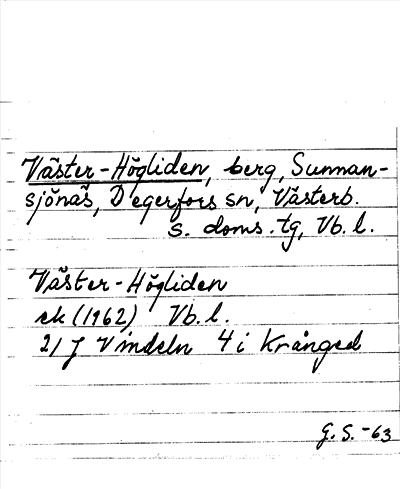 Väster-Högliden, berg, Sunnan-
sjönäs, Degerfors sn, Västerb.
s. doms. tg, Vb. l.
Väster-Högliden
ek (1962) Vb. l.
21 J Vindeln 4 i Krånged
G. S. -63